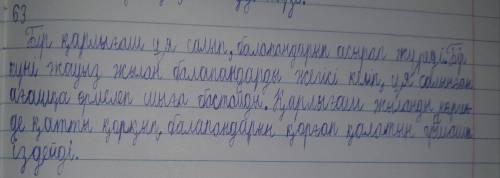 63
Бір қарлығаш ұя салып, балапандарын асырап жүреді. Бір
күні жауыз жылан балапандарды жегісі келіп, ұя салынған
ағашқа өрмелеп шыға бастайды. Қарлығаш жыланды көрген
де қатты қорқып, балапандарын қорғап қалатын
іздейді.